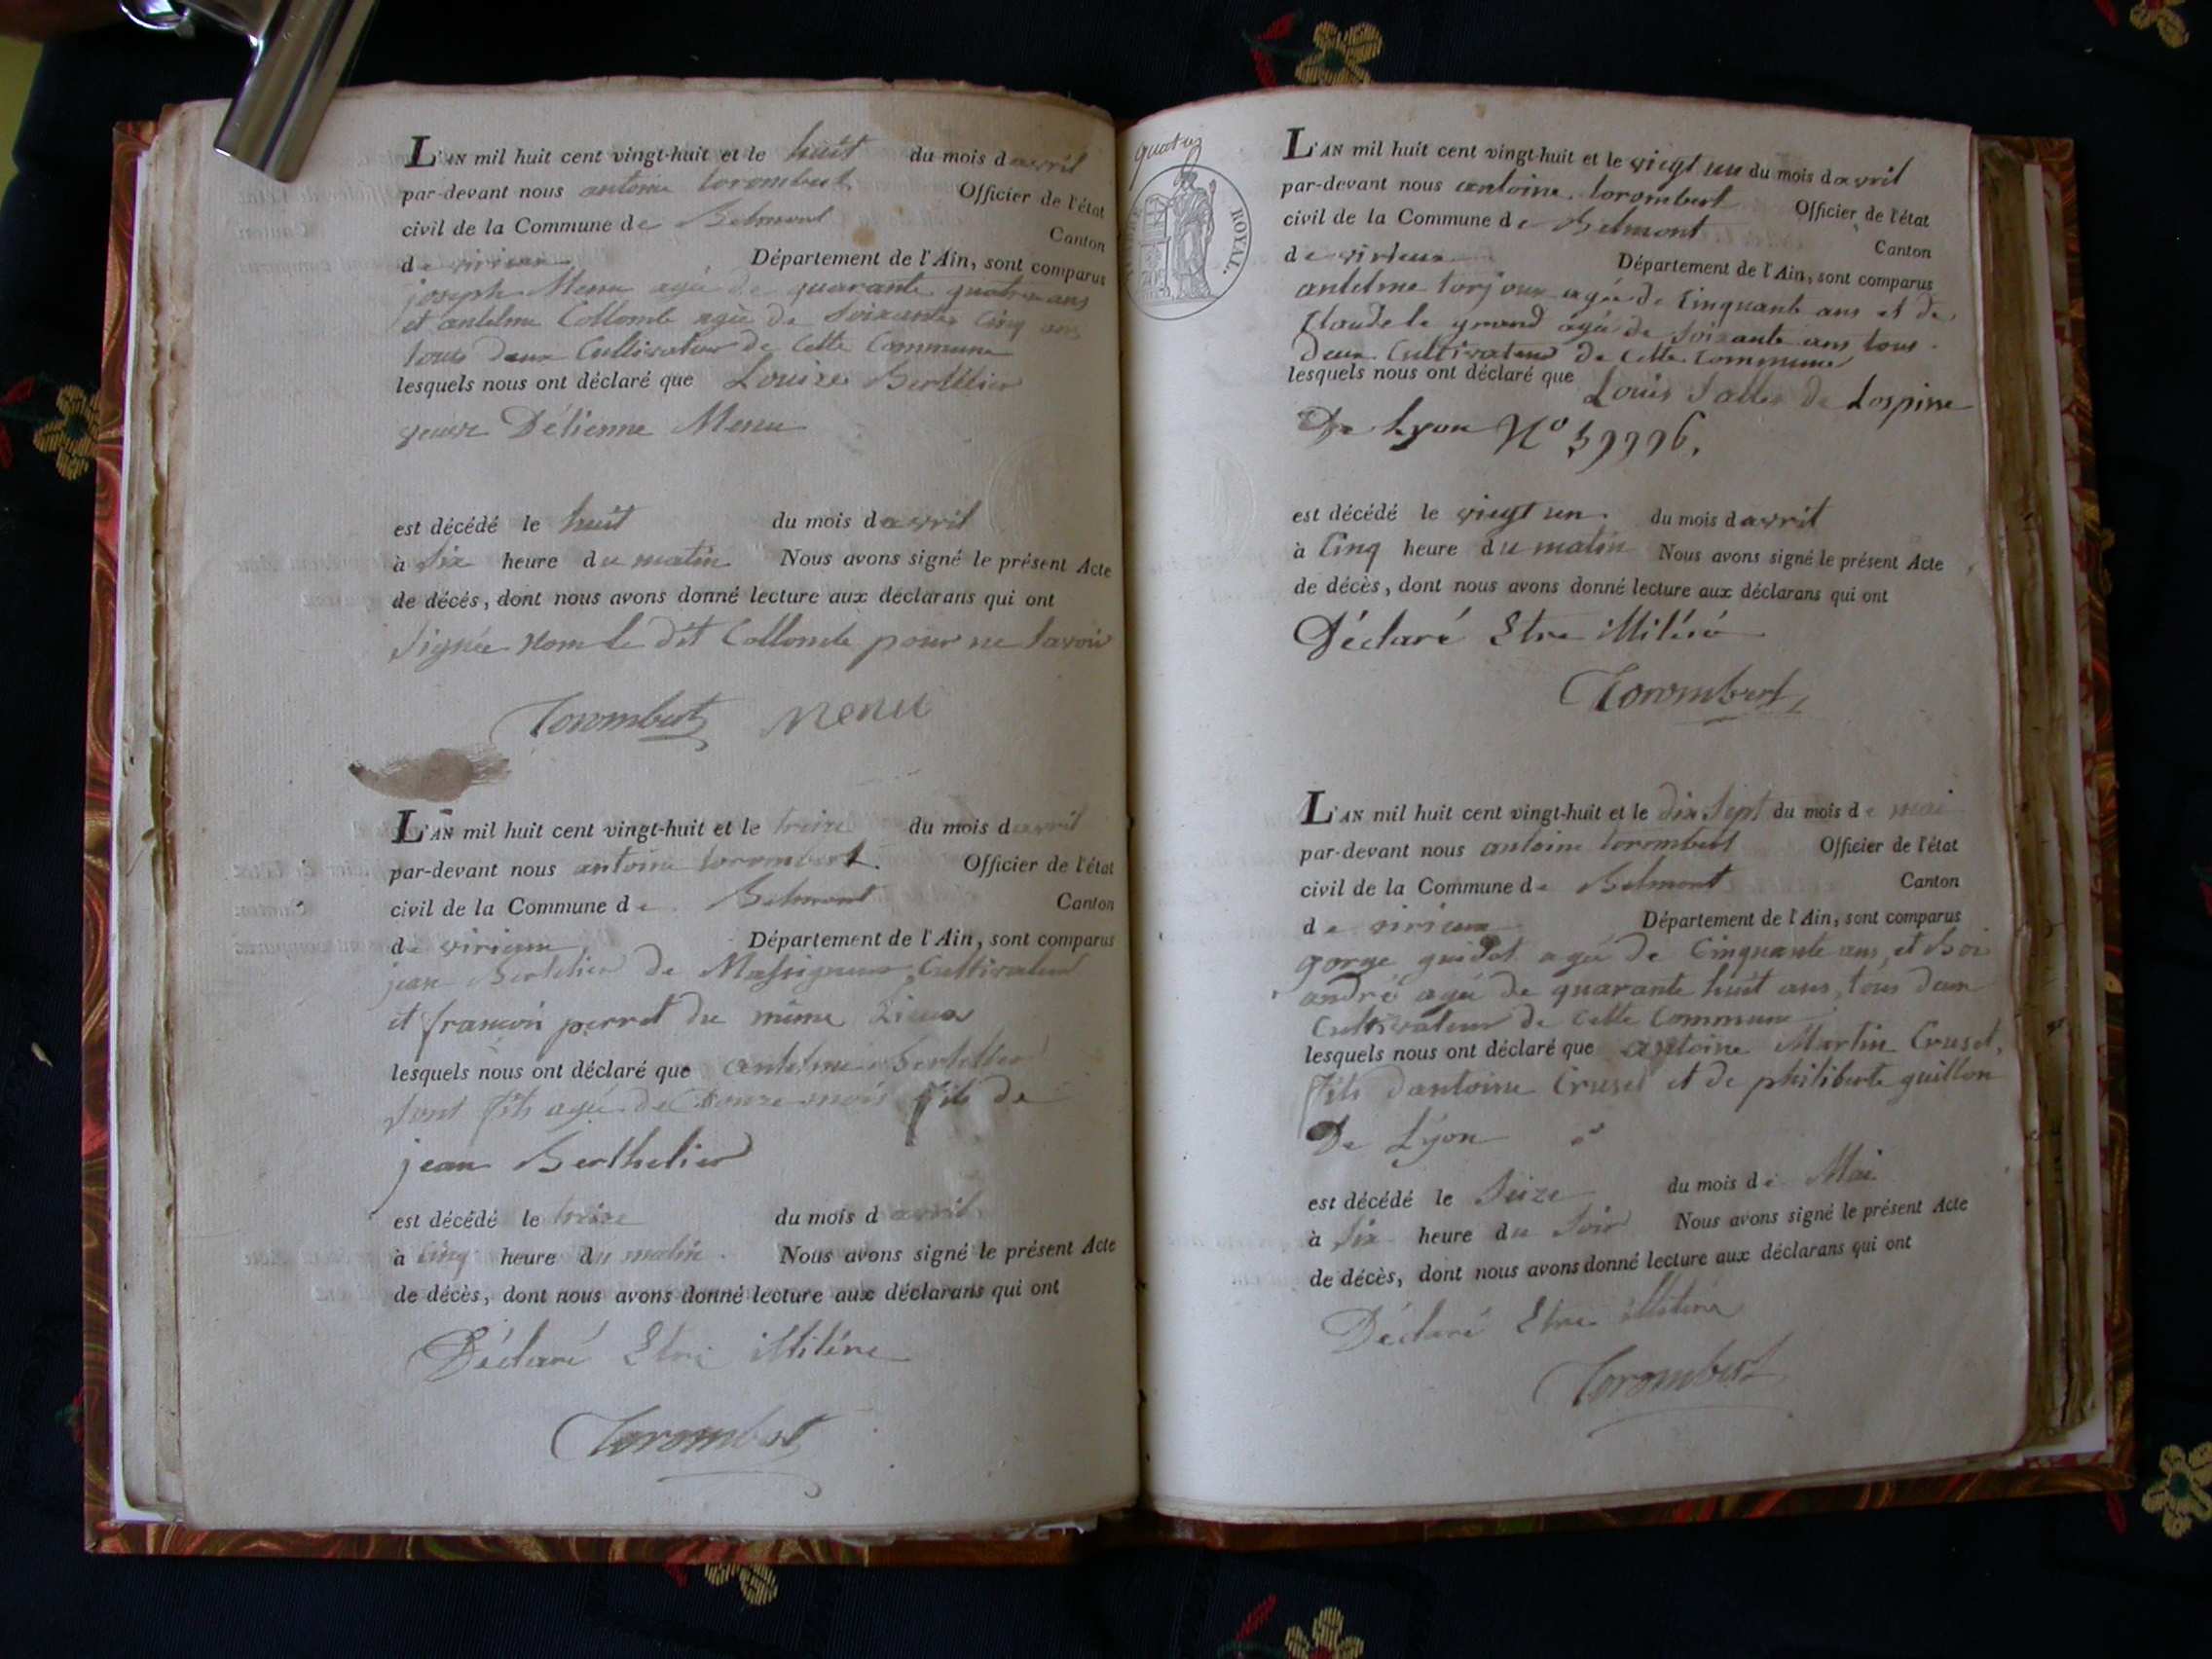 L'AN mil huit cent vingt-huit et le huit du mois d avril
par-devant nous antoine torombert Officier de l'état
civil de la Commune de Belmont Canton
de virieux Département de l'Ain, sont comparus
joseph Menu agé de quarante quatre ans
et antelme Collomb agée de soixante cinq ans
tous deux Cultivateur de Cette Commune
lesquels nous ont déclaré que Louize Berthlier
veuve Détienne Menu
est décédé le huit du mois d avril
à six heure du matin Nous avons signé le présent Acte
de décés, dont nous avons donné lecture aux déclarans qui ont
signée nom le dit Collomb pour ne savoir
Torombert menu
L'AN mil huit cent vingt-huit et le treize du mois d avril
par-devant nous antoine torombert. Officier de l'état
civil de la Commune de Belmont Canton
de virieux Département de l'Ain, sont comparus
jean Bertelier de Massigneux Cultivateur
et françois perret du même Lieux
lesquels nous ont déclaré que antelme Berthelier
sont fils agé de mois fils de
jean Berthelier
est décédé le treize du mois d avril
à Cinq heure du matin. Nous avons signé le présent Acte
de décès, dont nous avons donné lecture aux déclarans qui ont
Déclaré Etre illitére
Torombert
quatre
ROYAL.
L'AN mil huit cent vingt-huit et le vingt un du mois d avril
par-devant nous antoine torombert Officier de l'état
civil de la Commune de Belmont Canton
de virieux Département de l'Ain, sont comparus
antelme torjoux agée de Cinquante ans et de
Claude le grand agée de soixante ans tous
deux Cultivateur de Cette Commune
lesquels nous ont déclaré que Louis Salles de Lospine
De Lyon N° 39996.
est décédé le vingt un. du mois d avril
à Cinq heure du matin Nous avons signé le présent Acte
de décès, dont nous avons donné lecture aux déclarans qui ont
Déclaré Etre illitéré
Torombert
L'AN mil huit cent vingt-huit et le dix sept du mois de mai
par-devant nous antoine torombert Officier de l'état
civil de la Commune de Belmont Canton
de virieux Département de l'Ain, sont comparus
gorge guidot agée de Cinquante ans, et Boi
andré agée de quarante huit ans, tous deux
Cultivateur de Cette Commune
lesquels nous ont déclaré que antoine Martin Cruset,
fils d'antoine Cruset et de philiberte guillon
De Lyon
est décédé le seize du mois de Mai
à six heure du soir Nous avons signé le présent Acte
de décès, dont nous avons donné lecture aux déclarans qui ont
Déclaré Etre illitére
Torombert